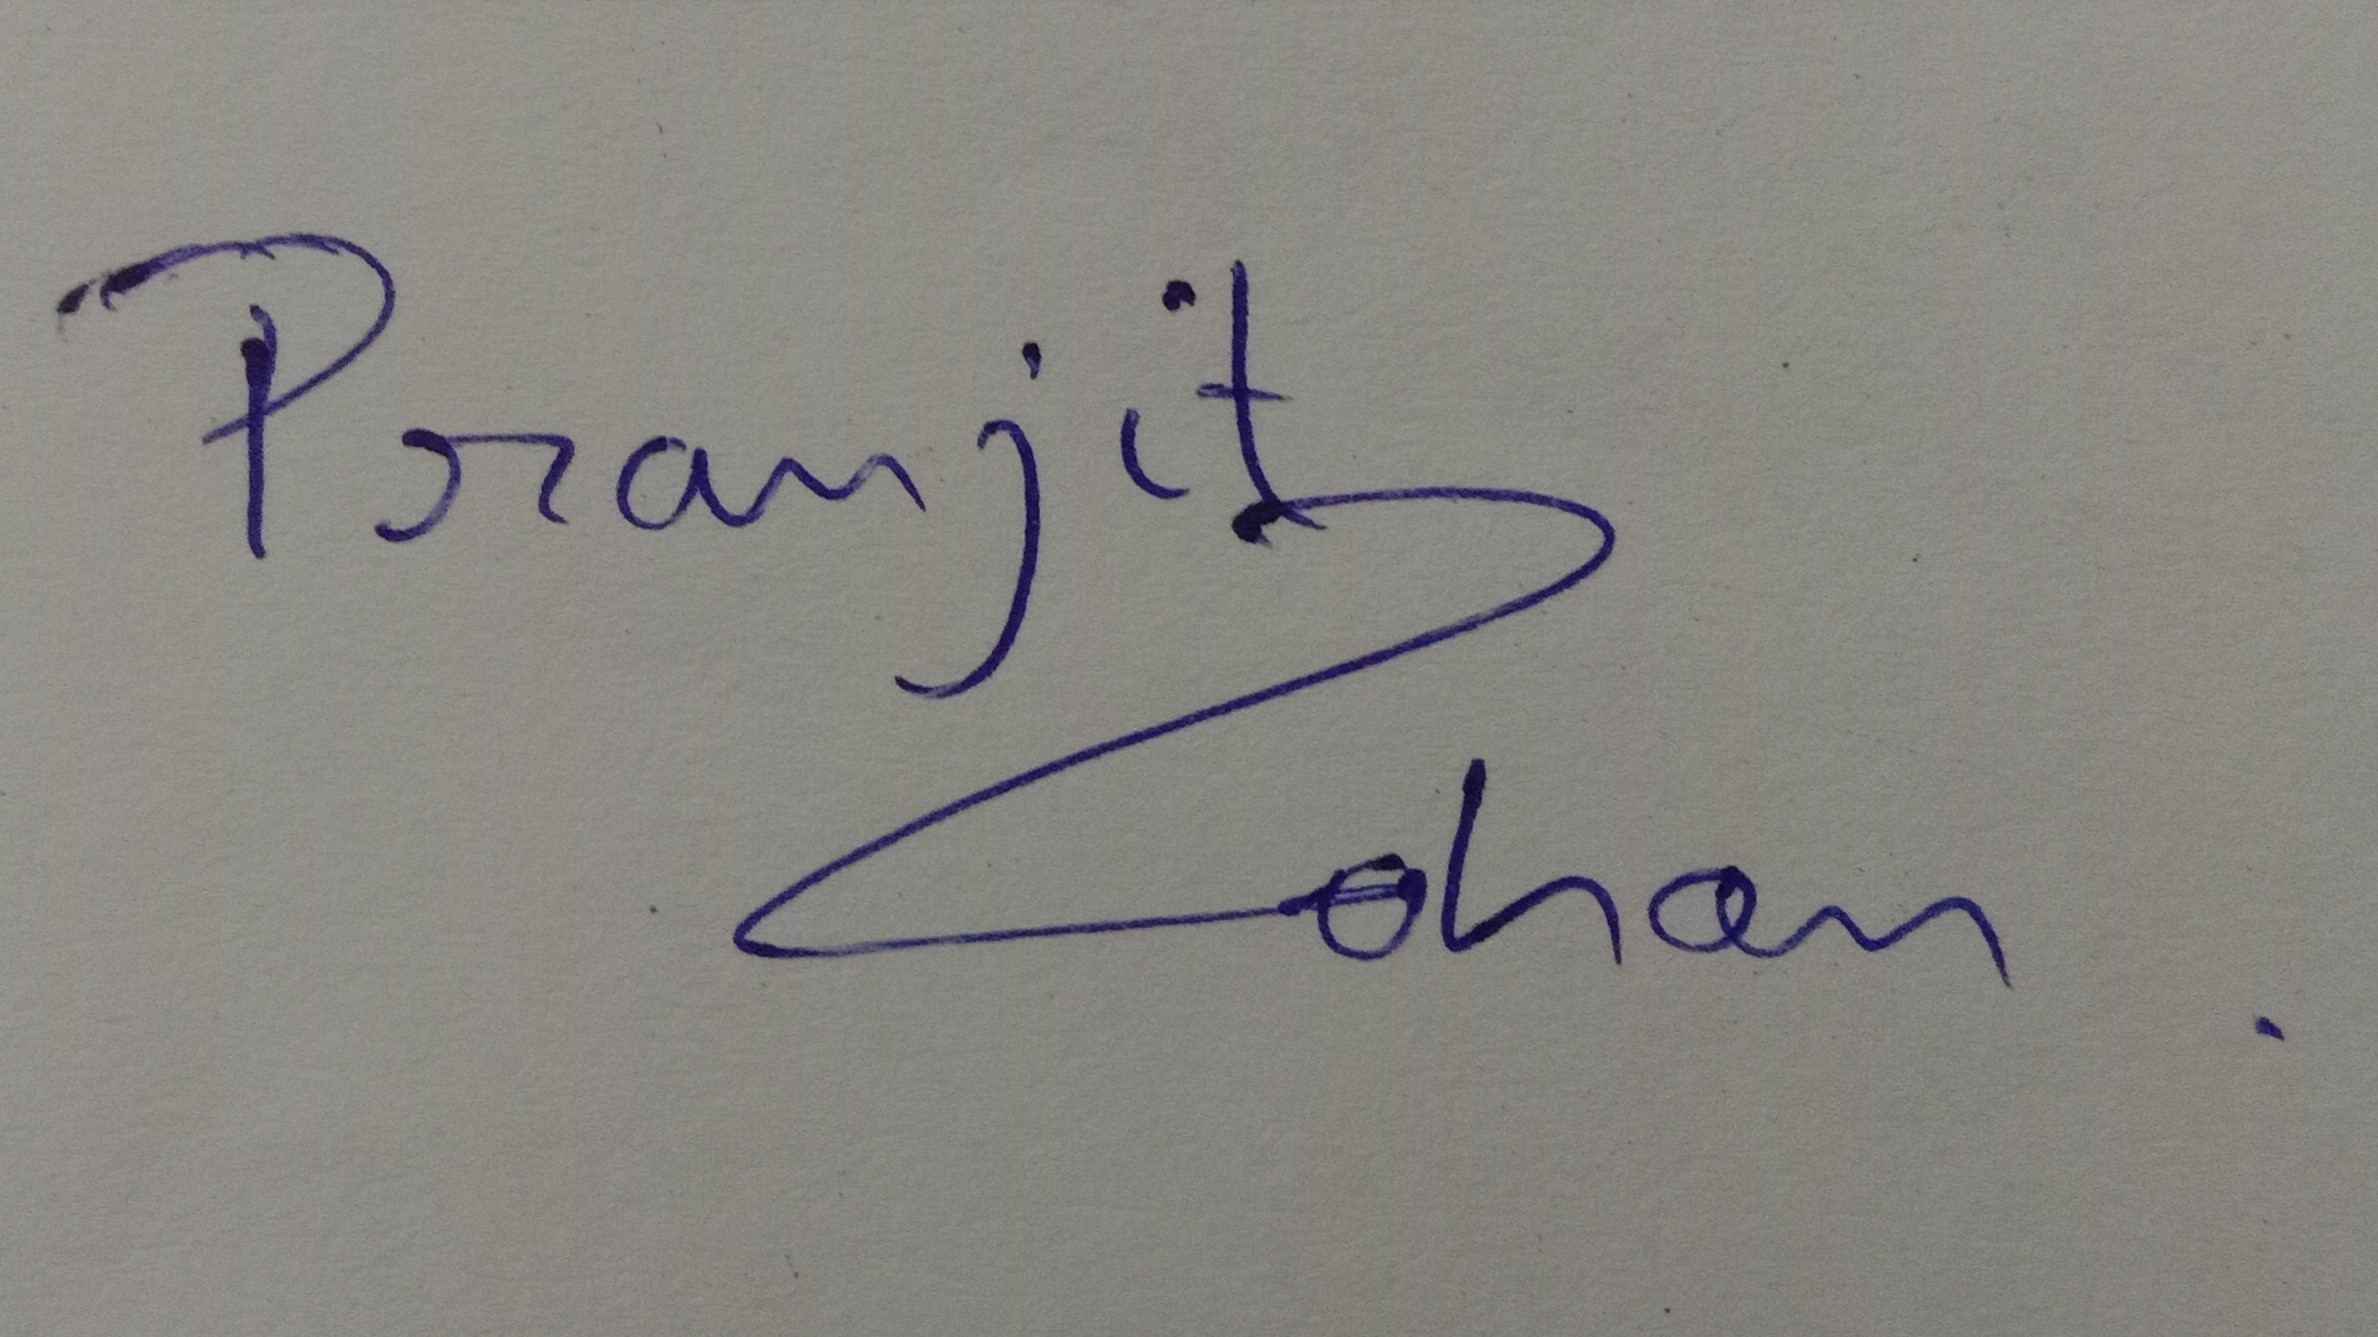 Pranjit
Lohan.